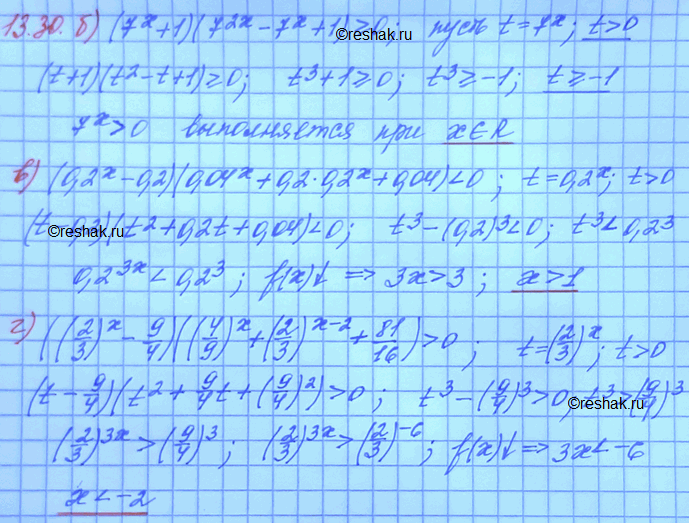 13.30. б) (7^x+1)(7^{2x}-7^x+1)≥0; пусть t=7^x; t>0
©reshak.ru
(t+1)(t²-t+1)≥0; t³+1≥0; t³≥-1; t≥-1
7^x>0 выполняется при x∈R
в) (0,2^x-0,2)(0,04^x+0,2·0,2^x+0,04)<0; t=0,2^x; t>0
(t-0,2)(t²+0,2t+0,04)<0; t³-(0,2)³<0; t³<0,2³
©reshak.ru
0,2^{3x}<0,2³; f(x)↓ => 3x>3; x>1
г) ((2/3)^x-9/4)((4/9)^x+(2/3)^{x-2}+81/16)>0; t=(2/3)^x; t>0
(t-9/4)(t²+9/4t+(9/4)²)>0; t³-(9/4)³>0; t³>(9/4)³
©reshak.ru
(2/3)^{3x}>(9/4)³; (2/3)^{3x}>(2/3)^{-6}; f(x)↓ => 3x<-6
x<-2